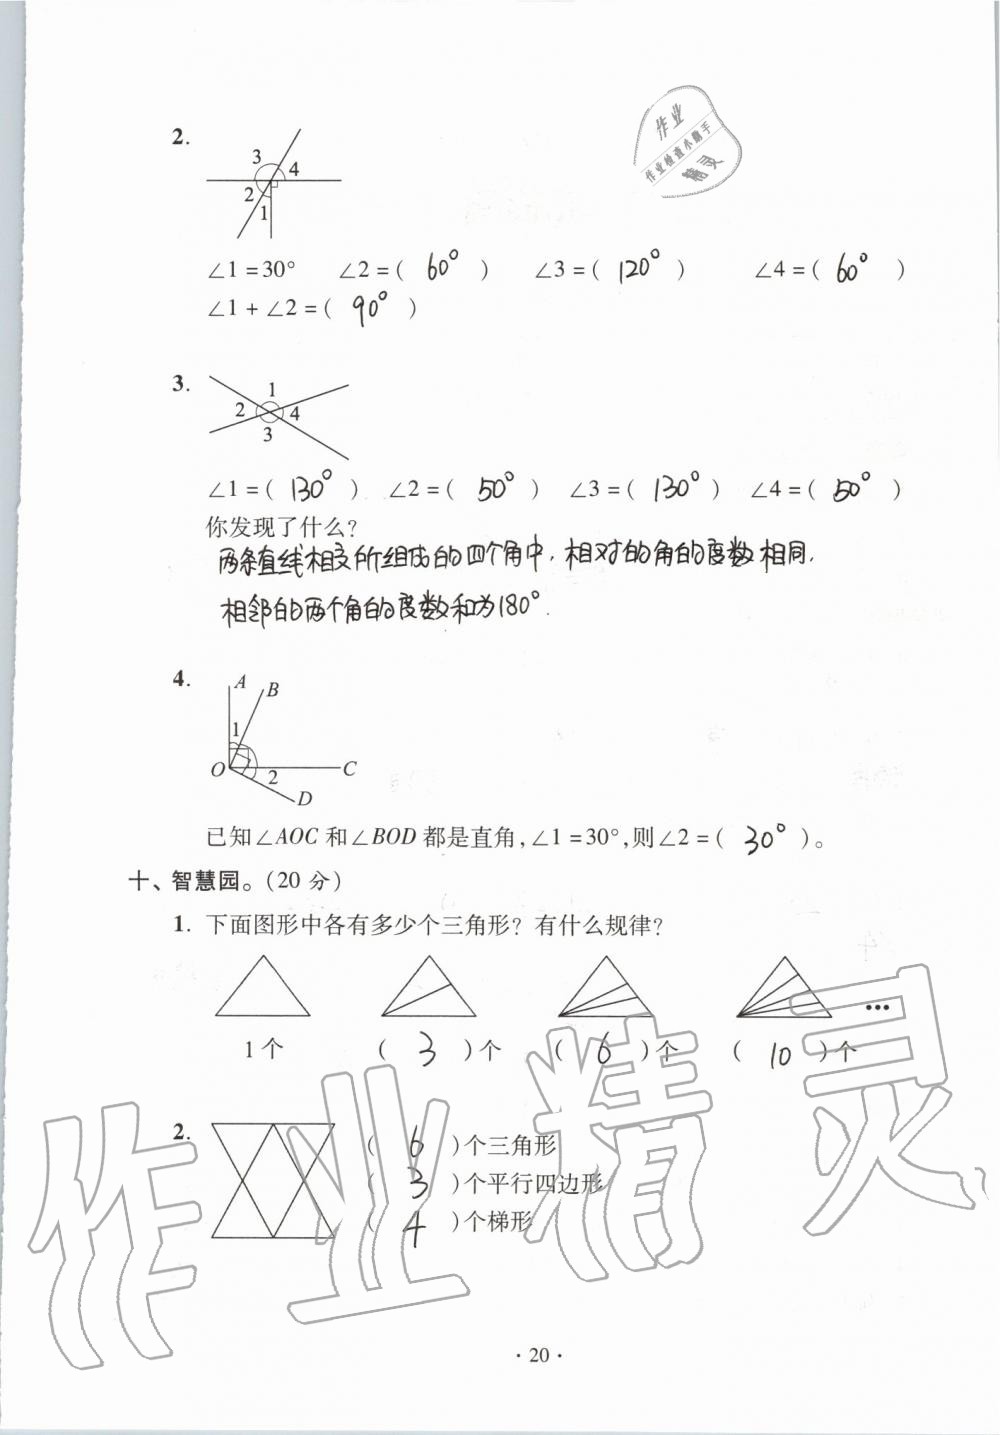 作业
作业检查小助手
精灵
2.
3
4
2
1
∠1=30° ∠2=( 60° ) ∠3=( 120° ) ∠4=( 60° )
∠1+∠2=( 90° )
3.
1
2 4
3
∠1=( 130° ) ∠2=( 50° ) ∠3=( 130° ) ∠4=( 50° )
你发现了什么?
两条直线相交所组成的四个角中,相对的角的度数相同.
相邻的两个角的度数和为180°.
4.
A B
1
O 2 C
D
已知∠AOC和∠BOD都是直角,∠1=30°,则∠2=( 30° )。
十、智慧园。(20分)
1. 下面图形中各有多少个三角形? 有什么规律?
…
1个 ( 3 )个 ( 6 )个 ( 10 )个
2. ( 6 )个三角形
( 3 )个平行四边形
( 4 )个梯形
作业精灵
·20·